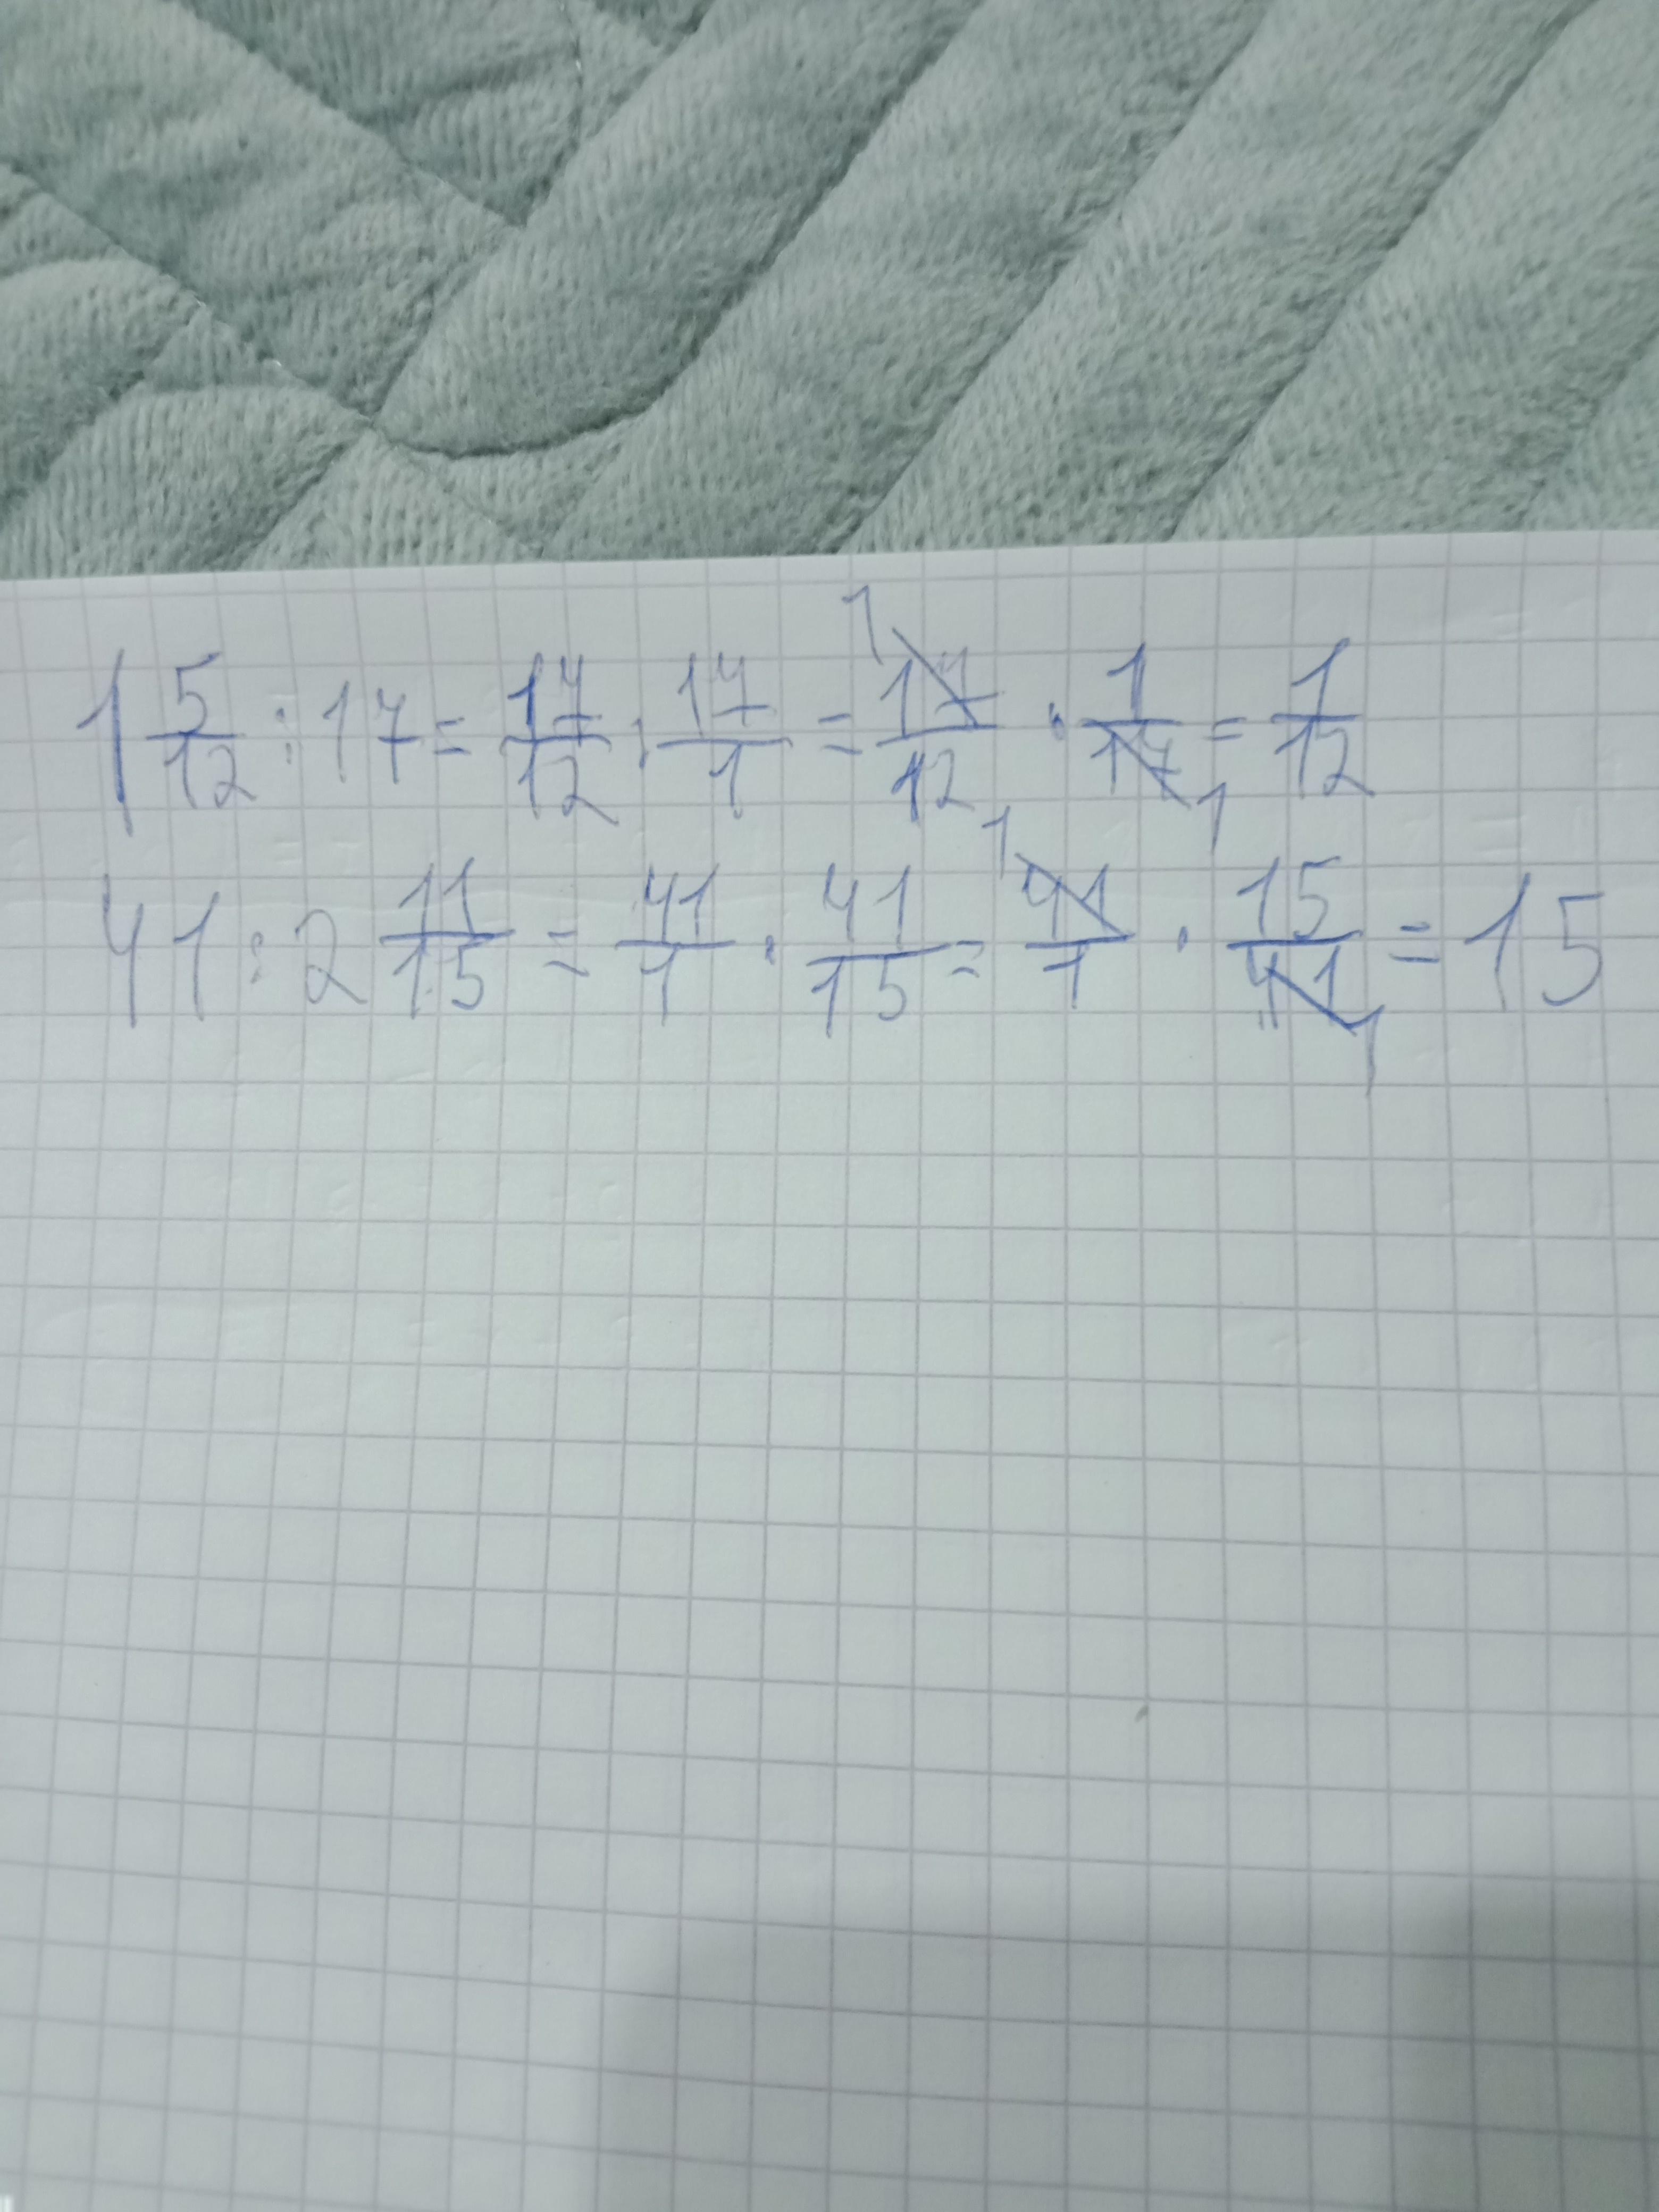 1 5/12 : 17 = 17/12 : 17/1 = 17/12 · 1/17 = 1/12
41 : 2 11/15 = 41/1 · 41/15 = 41/1 · 15/41 = 15